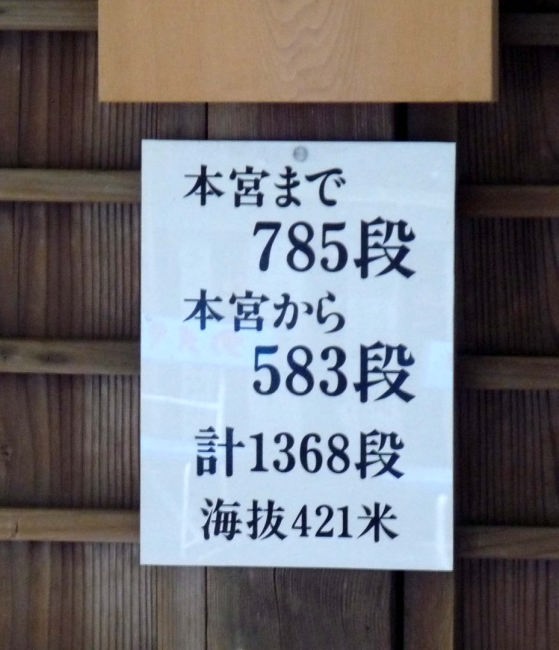 本宮まで
785段
本宮から
583段
計1368段
海抜421米